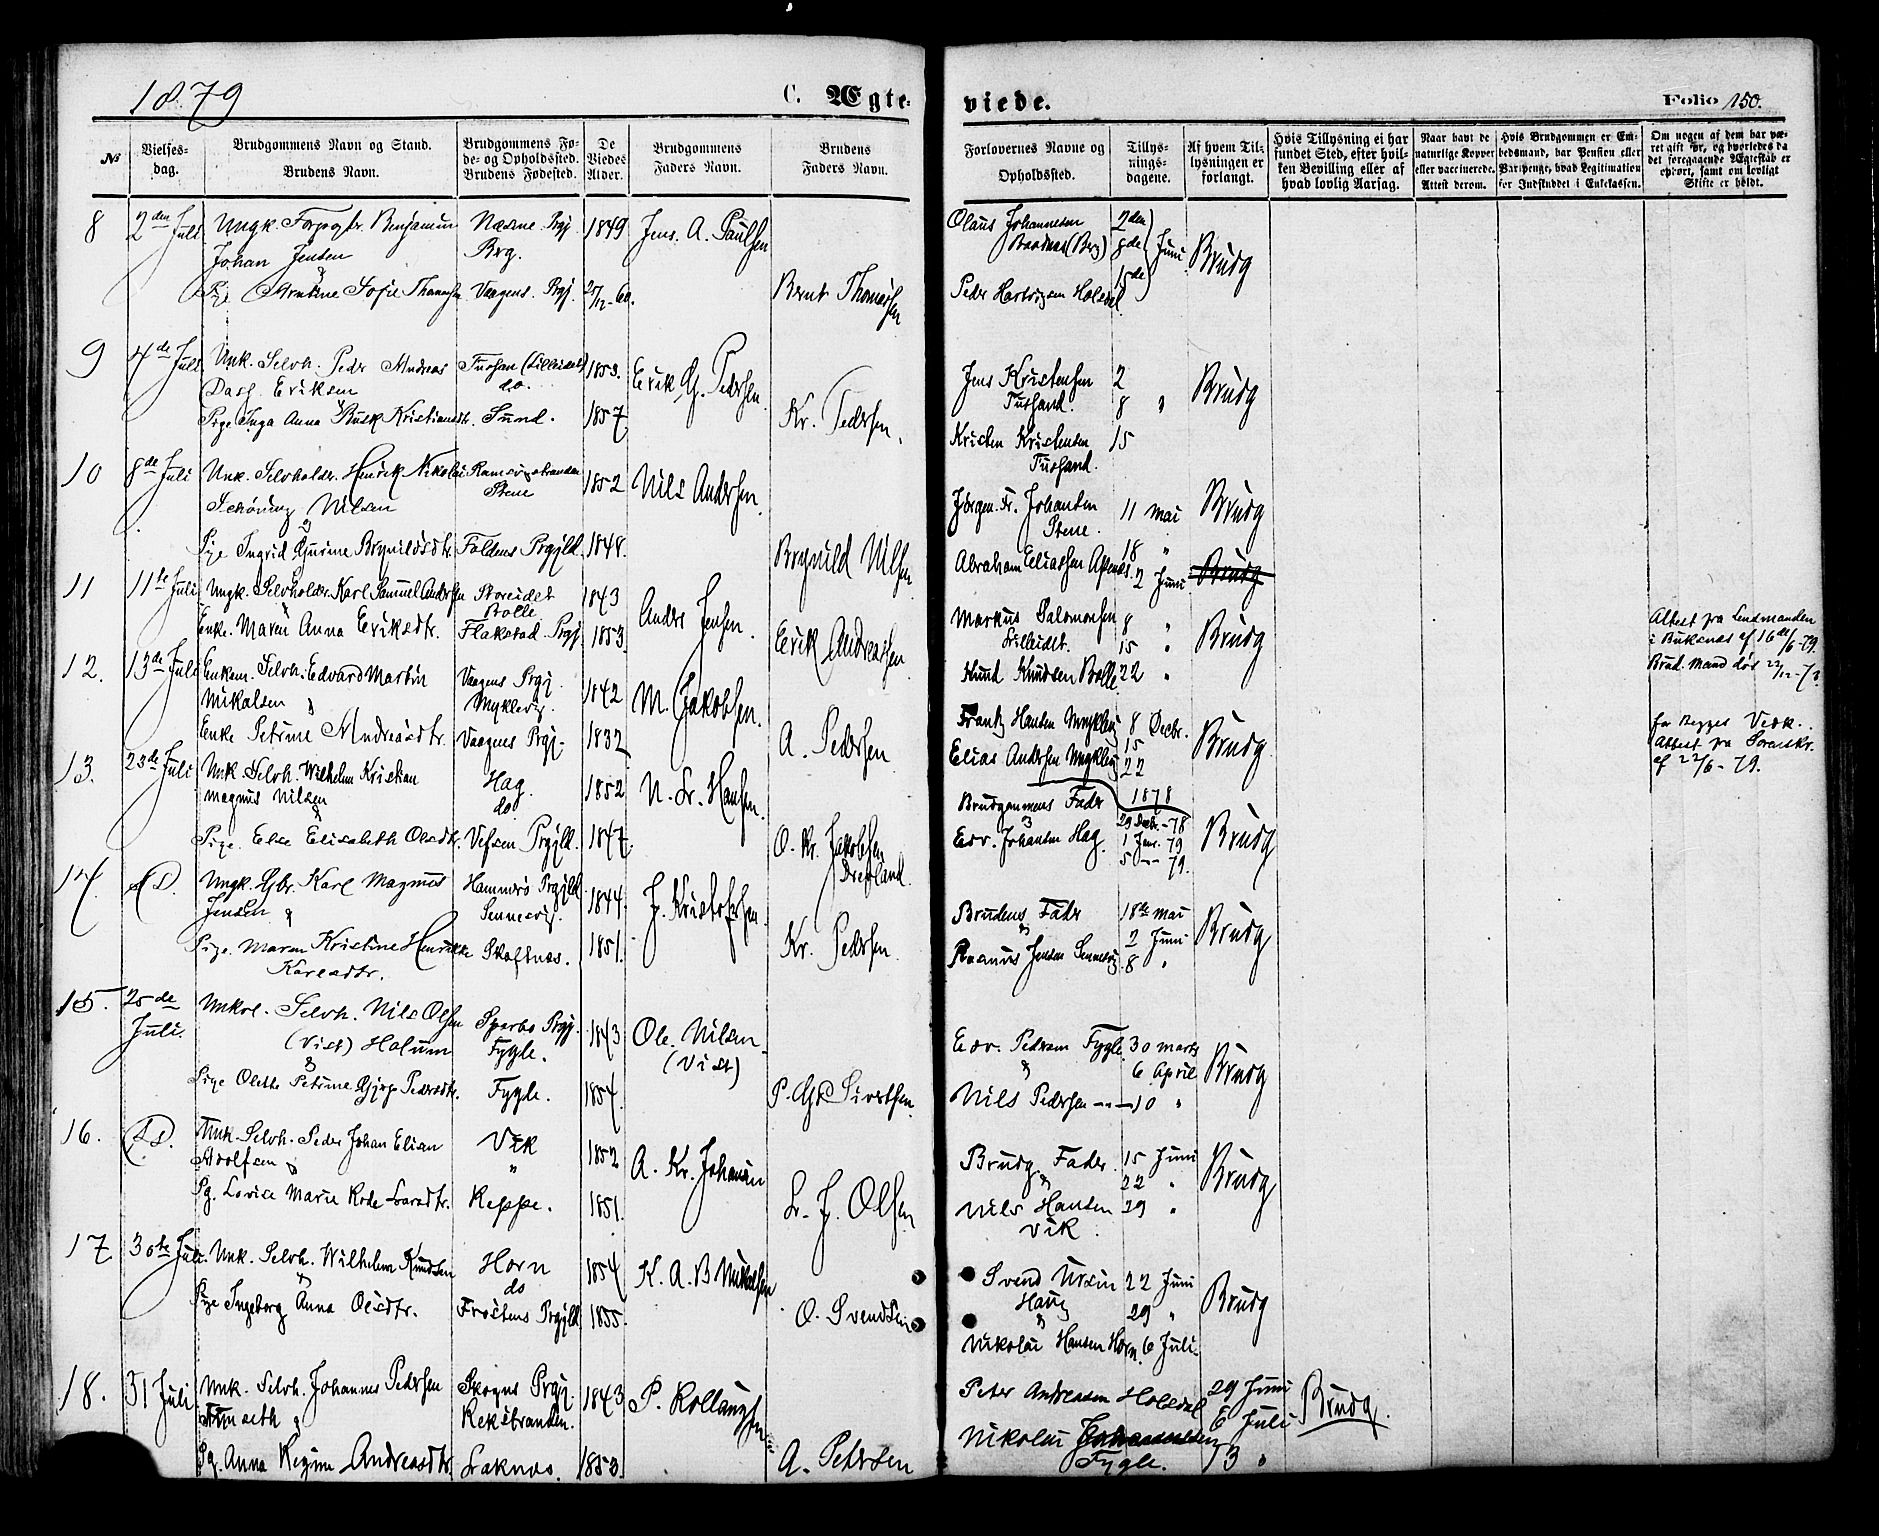 1879
C. Ægte-
№
Vielses-
dag.
Brudgommens Navn og Stand.
Brudens Navn.
Brudgommens Fø-
de- og Opholdssted.
Brudens Fødested.
De
Viedes
Alder.
Brudgommens
Faders Navn.
Brudens
Faders Navn.
8 2den Juli Ungk. Benjamin Næsne Prgj. 1849 Jens. A. Paulsen
Johan Jensen Brg.
&
Pige Sofie Vaagens Prgj. 27/12-60. Bernt Thomassen
9 4de Juli Unk. Selvh. Peder Andreas 1853. Erik Pedersen.
Dass Eriksen do.
Pige Inga Anna Busk Kristiansdtr. Sund. 1857 Kr. Pedersen.
10 8de Juli Unk. Selvholder. Henrik Nikolai Ramsvigstranden 1852 Nils Andersen.
Schöning Nilsen Stene
&
Pige Ingrid Gurine Brynildsdtr. Foldens Prgjld. 1848. Brynild Nilsen
11 11te Juli Ungk. Selvholder. Karl Samuel Andersen Storeidet 1843 Anders Jensen.
& Bolle
Enke. Maren Anna Eriksdtr. Flakstad Prgj. 1853. Erik Andreassen
12. 13de Juli Enkem. Selvh. Edvard Martin Vaagens Prgj. 1842 M. Jakobsen.
Mikalsen & Myklevig.
Enke Petrine Andreasdtr. Vaagens Prgj. 1832 A. Pedersen
13. 23de Juli Unk. Selvh. Wilhelm Kristian Hag. 1852 N. Hansen.
Magnus Nilsen do
&
Pige. Else Elisabeth Olsdtr. Vefsen Prgjld. 1847. O. Kr. Jakobsen
14. S.D. Ungk. Gbr. Karl Magnus Hammerö Prgjld. 1844. J. Kristofersen.
Jensen & Sennesvig.
Pige. Maren Kristine Henrikke Skolfnæs. 1851. Kr. Pedersen.
Karlsdtr.
15. 25de Unkrl. Selvh. Nils Olsen Sparbo Prgj. 1843 Ole. Nilsen.
Juli. (Vist) Halum Fygle. (Vist)
&
Pige Olette Petrine Pedersdtr. Fygle. 1854. P. Sivertsen.
16. S.D. Unk. Selvh. Peder Johan Elisen Vik 1852 A. Kr. Johansen
Adolfsen & "
Pg. Lovise Marie Larsdtr. Reppe. 1851. L. J. Olsen
17 30te Juli. Unk. Selvh. Wilhelm Knudsen Horn 1854 K. A. B. Mikalsen
& do
Pige Ingeborg Anna Olsdtr. Frostens Prgjld. 1855. O. Svendsen
18. 31 Juli Unk. Selvh. Johannes Pedersen Skogns Prgj. 1843 P. Kollangsen
& Rekstranden.
Pg. Anna Regine Andreasdtr. Laknæs. 1853. A. Petersen
viede.
Folio 150.
Forlovernes Navne og
Opholdssted.
Tillys-
nings-
dagene.
Af hvem Til-
lysningen er
forlangt.
Hvis Tillysning ei har
fundet Sted, efter hvil-
ken Bevilling eller af
hvad lovlig Aarsag.
Naar havt de
naturlige Kopper
eller vaccinerede.
Attest derom.
Hvis Brudgommen er Em-
bedsmand, har Pension eller
Vartpenge, hvad Legitimation
for Indskuddet i Enkekassen.
Om nogen af dem har væ-
ret gift før, og hvorledes da
det foregaaende Ægteskab er
ophørt, samt om lovligt
Skifte er holdt.
Olaus Johannesen 2den
(Berg) 8de Juni Brudg
15de
Peder Hartvigsen Holsdal
Jens Kristensen 2 Brudg
8 "
Kristen Kristensen 15
Jörgen. Fr. Johansen 11 Mai Brudg
Stene. 18 "
Abraham Eliassen 2 Juni Brudg
Markus Salomonsen 8 " Brudg
Lilleidet. 15 "
Knud Knudsen Bolle 22 "
Attest fra Lensmanden
i Buksnæs af 16de/6-79.
Brud. Mand död 22/12-73.
Frantz Hansen Myklevig 8 Decbr. Brudg.
15
Elias Andersen Myklevig 22
1878
for begges Vedk.
Attest fra Sorenskr.
af 22/6-79.
Brudgommens Fader 29 Decbr.-78 Brudg
&
Edv. Johansen Hag. 1 Janr. 79
5 -- 79.
Brudens Fader 18de Mai Brudg
& 2 Juni
Rasmus Jensen Sennesvig 8 "
Edv. Pedersen Fygle 30 Marts Brudg
& 6 April
Nils Pedersen -- 10 "
Brudg. Fader. 15 Juni Brudg
& 22 "
Nils Hansen 29 "
Vik.
Svend Ursin 22 Juni Brudg
Haug 29 "
&
Nikolai Hansen Horn. 6 Juli.
Peter Andreasen Holsdal 29 Juni Brudg.
6 Juli
Nikolai Johannessen 13 "
Fygle.